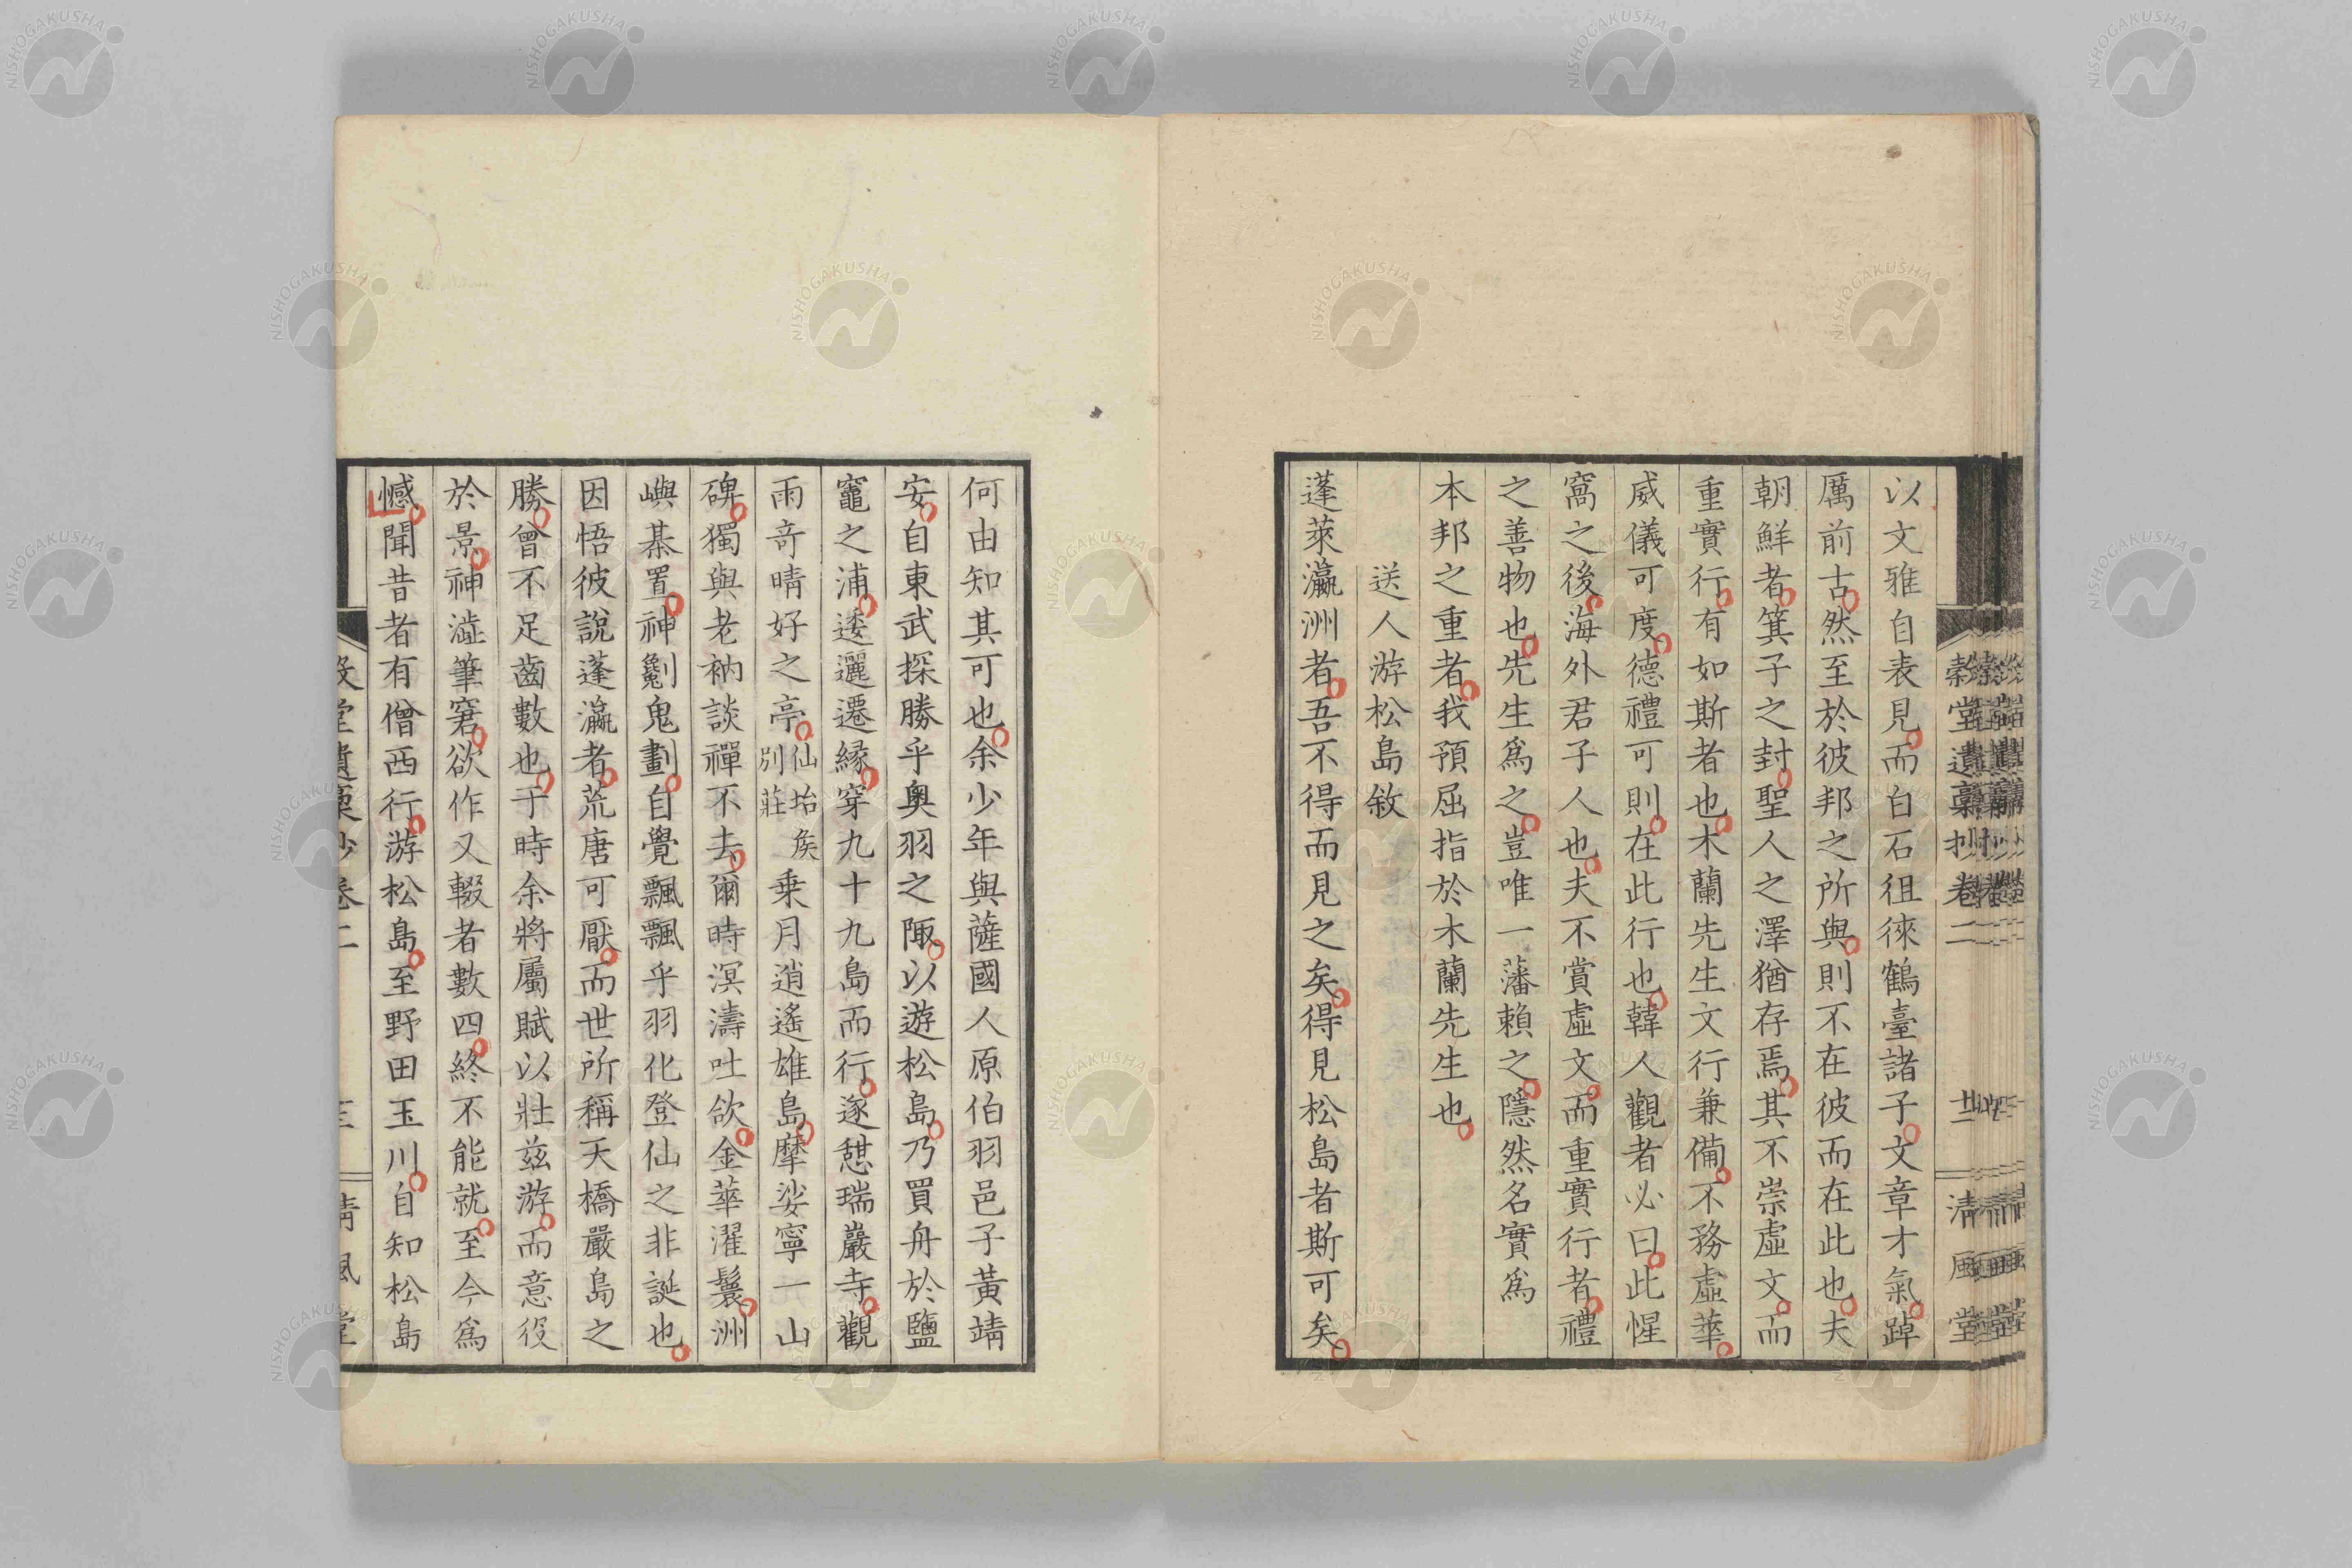 穀堂遺稾抄卷二
清風堂
以文雅自表見而白石徂徠鶴臺諸子文章才氣踔
厲前古然至於彼邦之所與則不在彼而在此也夫
朝鮮者箕子之封聖人之澤猶存焉其不崇虛文而
重實行有如斯者也木蘭先生文行兼備不務虛華
威儀可度德禮可則在此行也韓人觀者必曰此惺
窩之後海外君子人也夫不賞虛文而重實行者禮
之善物也先生爲之豈唯一藩賴之隱然名實爲
本邦之重者我預屈指於木蘭先生也
送人游松島敘
蓬萊瀛洲者吾不得而見之矣得見松島者斯可矣
何由知其可也余少年與薩國人原伯羽邑子黃靖
安自東武探勝乎奧羽之陬以遊松島乃買舟於鹽
竈之浦逶邐遷緣穿九十九島而行遂憩瑞巖寺觀
雨奇晴好之亭仙坮矦別莊乗月逍遙雄島摩娑寧一山
碑獨與老衲談禪不去爾時溟濤吐欱金華濯鬟洲
嶼棊置神劖鬼劃自覺飄飄乎羽化登仙之非誕也
因悟彼說蓬瀛者荒唐可厭而世所稱天橋嚴島之
勝曾不足齒數也于時余將屬賦以壯茲游而意役
於景神澁筆窘欲作又輟者數四終不能就至今爲
憾聞昔者有僧西行游松島至野田玉川自知松島
NISHOGAKUSHA